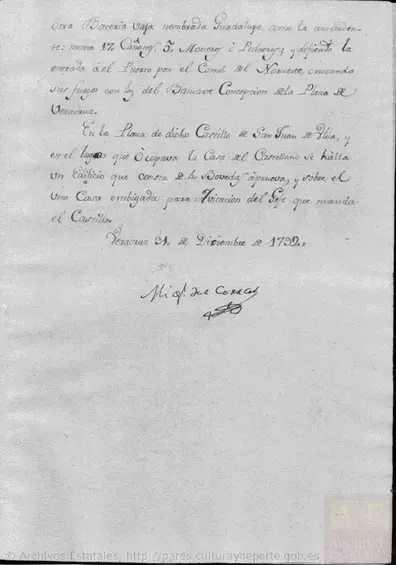 otra Bateria vaja nombrada Guadalupe, como la anteceden-
te: monta 17 Cañones, 5 Morteros ó Pedreros; y defiende la
entrada á el Puerto por el Canal del Noroeste, cruzando
sus fuegos con los del Baluarte Concepcion de la Plaza de
Veracruz.
En la Plaza de dicho Castillo de San Juan de Ulua, y
en el lugar que Ocupava la Casa del Castellano se halla
un Edificio que consta de Bovedas aprueva, y sobre el
una Casa embigada para avitacion del Gefe que manda
el Castillo.
Veracruz 31 de Diziembre de 1792
Mig.l del Corral
© Archivos Estatales, http://pares.culturaydeporte.gob.es
ARCHIVO